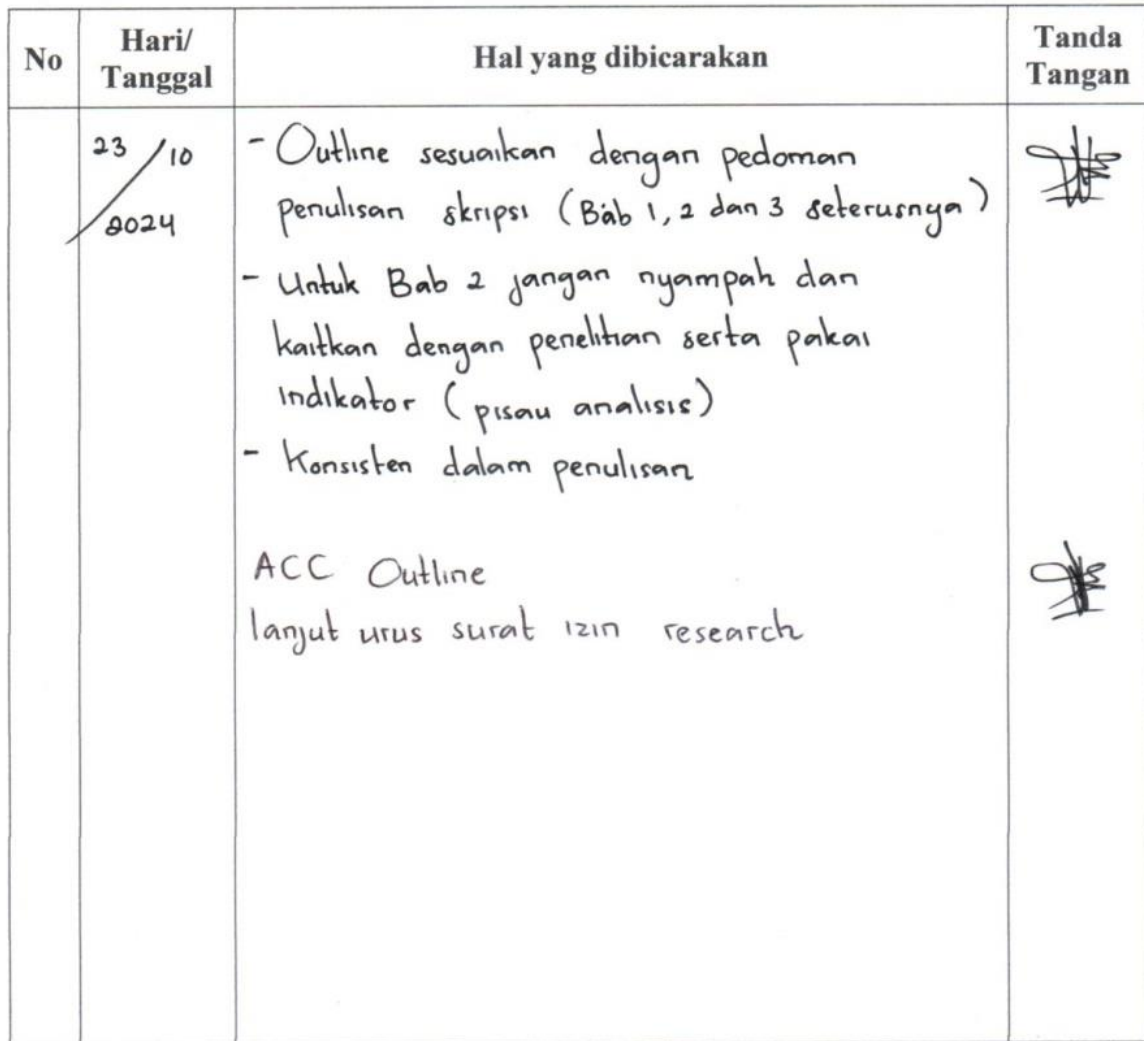 No
Hari/
Tanggal
Hal yang dibicarakan
Tanda
Tangan
23/10
2024
- Outline sesuaikan dengan pedoman
penulisan skripsi (Bab 1, 2 dan 3 seterusnya)
- Untuk Bab 2 jangan nyampah dan
kaitkan dengan penelitian serta pakai
indikator (pisau analisis)
- Konsisten dalam penulisan
ACC Outline
lanjut urus surat izin research